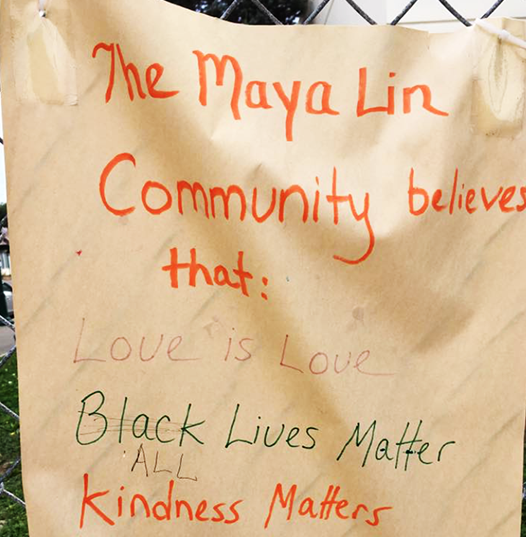 The Maya Lin
Community believes
that:
Love is Love
Black Lives Matter
ALL
Kindness Matters